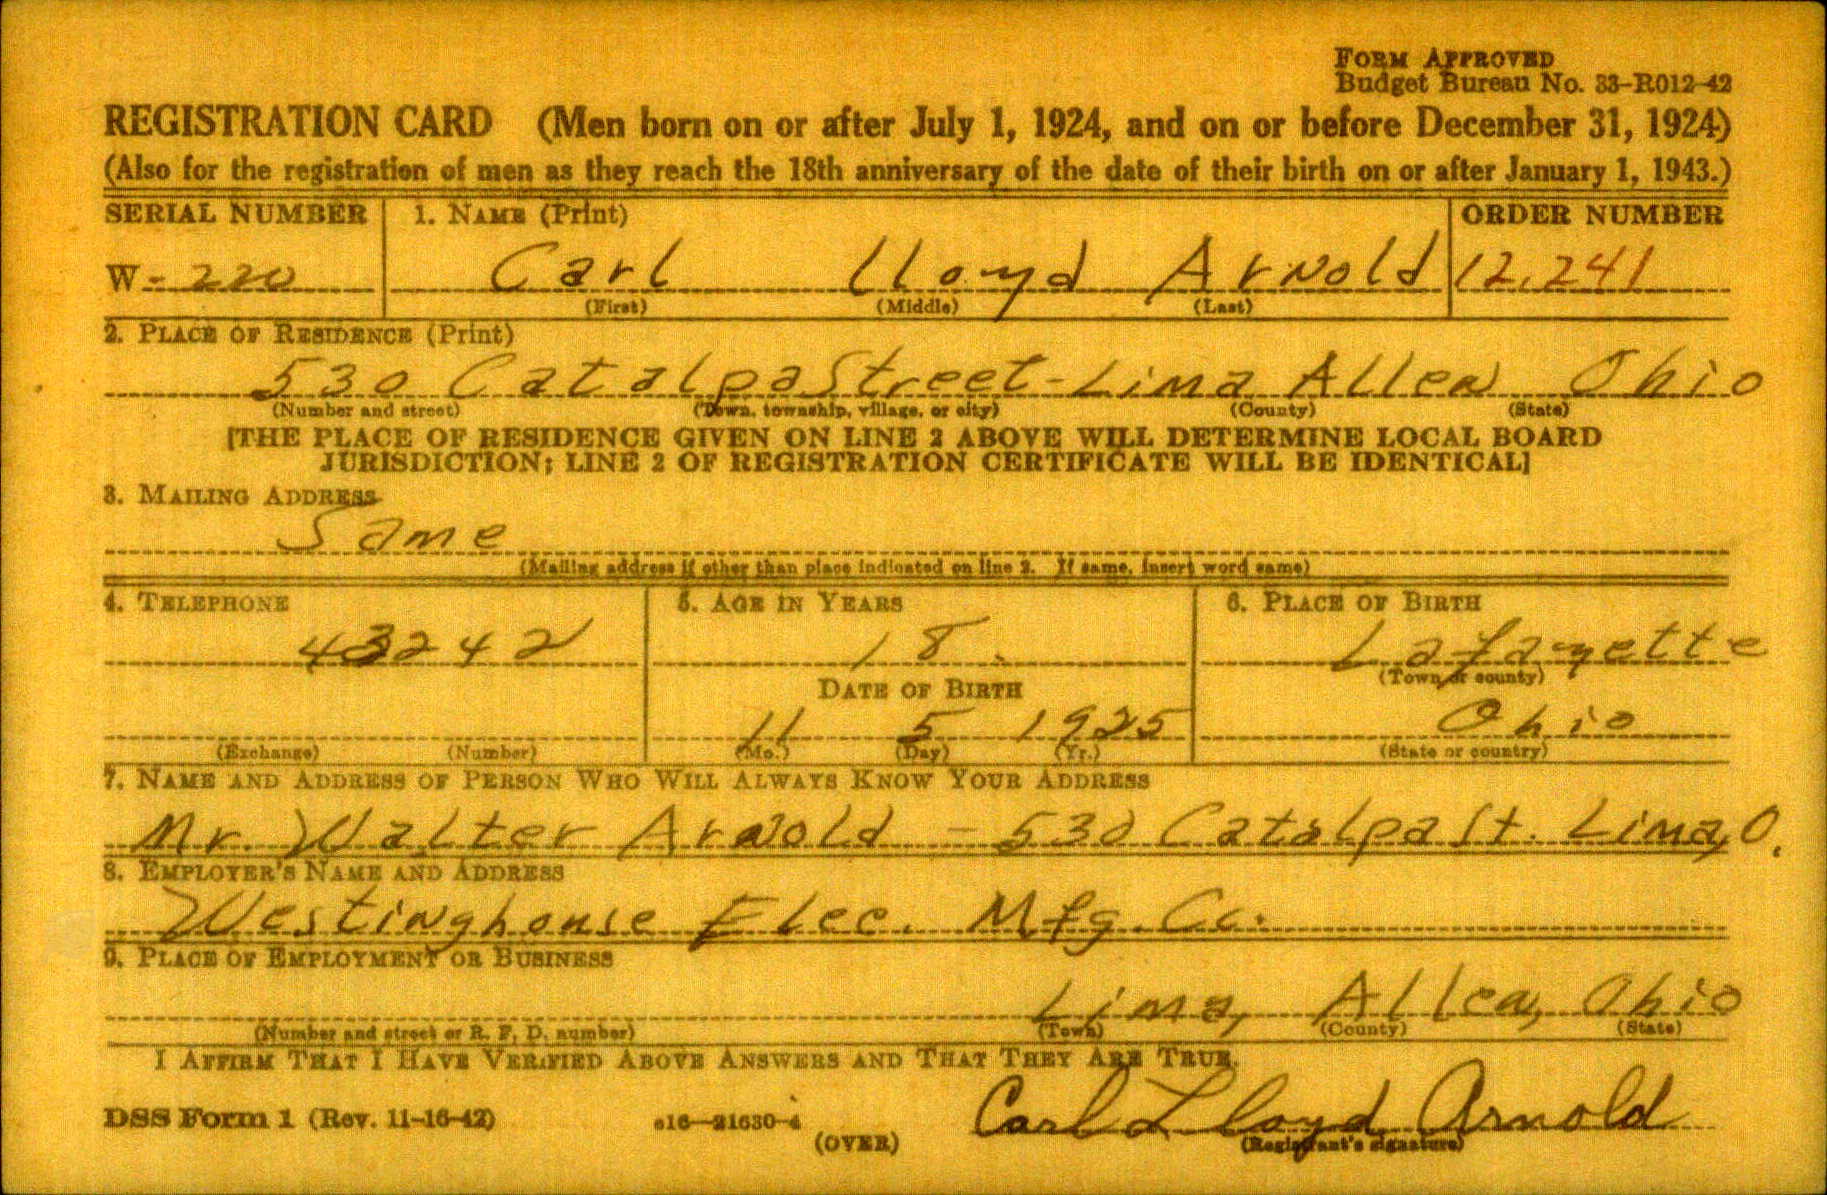 FORM APPROVED
Budget Bureau No. 33-R012-42
REGISTRATION CARD (Men born on or after July 1, 1924, and on or before December 31, 1924)
(Also for the registration of men as they reach the 18th anniversary of the date of their birth on or after January 1, 1943.)
SERIAL NUMBER 1. NAME (Print) ORDER NUMBER
W-220 Carl Lloyd Arnold 12,241
(First) (Middle) (Last)
2. PLACE OF RESIDENCE (Print)
530 Catalpa Street - Lima Allen Ohio
(Number and street) (Town, township, village, or city) (County) (State)
[THE PLACE OF RESIDENCE GIVEN ON LINE 2 ABOVE WILL DETERMINE LOCAL BOARD
JURISDICTION; LINE 2 OF REGISTRATION CERTIFICATE WILL BE IDENTICAL]
3. MAILING ADDRESS
Same
(Mailing address if other than place indicated on line 2. If same, insert word same)
4. TELEPHONE 5. AGE IN YEARS 6. PLACE OF BIRTH
43242 18. Lafayette
(Town or county)
DATE OF BIRTH
11 5 1925 Ohio
(Exchange) (Number) (Mo.) (Day) (Yr.) (State or country)
7. NAME AND ADDRESS OF PERSON WHO WILL ALWAYS KNOW YOUR ADDRESS
Mr. Walter Arnold - 530 Catalpa St. Lima, O.
8. EMPLOYER'S NAME AND ADDRESS
Westinghouse Elec. Mfg. Co.
9. PLACE OF EMPLOYMENT OR BUSINESS
Lima, Allen, Ohio
(Number and street or R. F. D. number) (Town) (County) (State)
I AFFIRM THAT I HAVE VERIFIED ABOVE ANSWERS AND THAT THEY ARE TRUE.
DSS Form 1 (Rev. 11-16-42) 16—21630-4 Carl Lloyd Arnold
(OVER) (Registrant's signature)